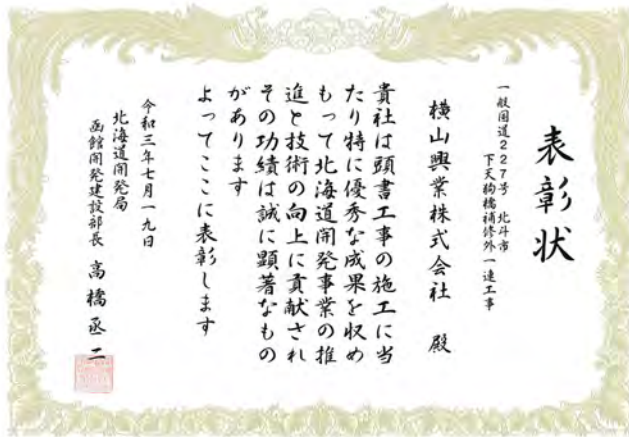 表彰状
一般国道227号 北斗市
下天狗橋補修外一連工事
横山興業株式会社 殿
貴社は頭書工事の施工に当
たり特に優秀な成果を収め
もって北海道開発事業の推
進と技術の向上に貢献され
その功績は誠に顕著なもの
があります
よってここに表彰します
令和三年七月一九日
北海道開発局
函館開発建設部長 高橋丞二